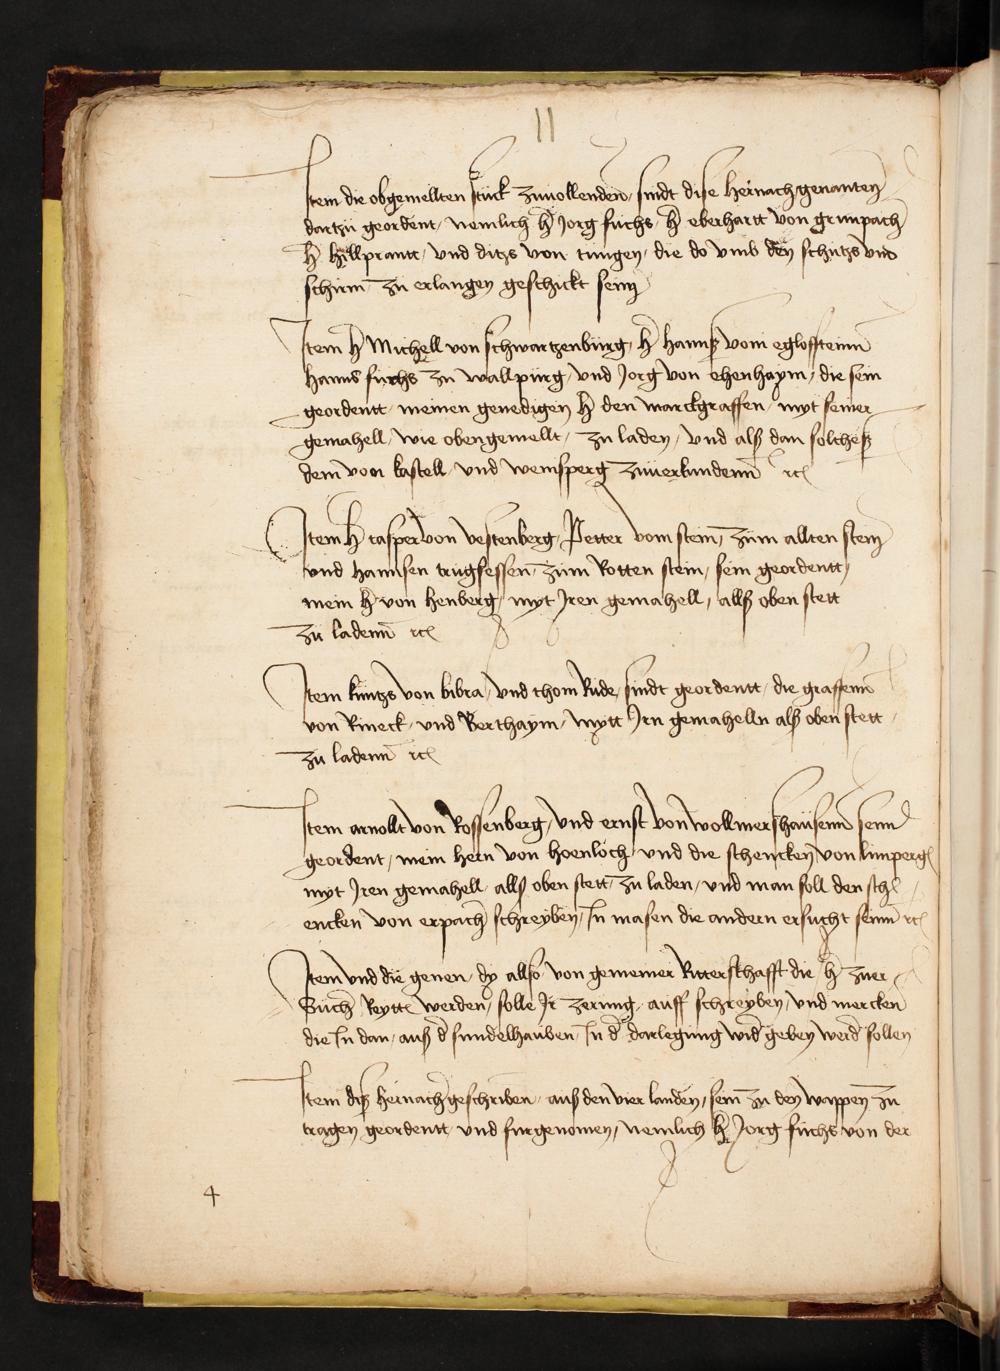 11
Item die obgemellten stück zuuollenden, sindt dise hernachgenanten
dartzu geordent, nemlich h Jorg fuchs, h eberhartt von grunpach
h hillprantt, vnd ditzs von tungen, die do vmb den schutzs vnd
schirm zu erlangen geschickt sein
Item h Michell von schwartzenburg, h hannß vom egloffsteinn
hanns fuchs zu wallpurg, vnd Jorg von ehenhaym, die sein
geordentt, meinen genedigen h den marckgraffen, myt seiner
gemahell, wie obengemellt, zu laden, vnd alß dan solcheß
dem von kastell, vnd weinsperg zuuerkundenn rc
Item h casper von vestenberg, Petter vom stein, zum allten stein
vnd hannsen trugsessen, zum Rotten stein, sein geordentt,
mein h von henberg, myt Iren gemahell, allß oben stett
zu ladenn rc
Item kuntzs von bibra, vnd thom Rüde, sindt geordentt, die graffenn
von Rineck, vnd Berthaym, mytt Irn gemahelln alß oben stett,
zu ladenn rc
Item arnollt von Rossenberg, vnd ernst von wollmerßhaüsenn seinn
geordent, mein hern von hoenloch, vnd die schencken von limperg
myt Iren gemahell, allß oben stett, zu laden, vnd man soll den sch
encken von erpach schreyben, In masen die andern ersucht seinn rc
Item vnd die genen, dy allso von gemeiner Ritterschafft die h zuer
Such Reytt werden, solle Ir zerung, auff schreyben, vnd mercken
die In dan, auß d sundelhauben, In d darlegung wid geben werd sollen
Item diß hernachgeschriben, auß den vier landen, sein zu den wappen zu
tragen geordentt vnd furgenomen, nemlich h Jorg fuchs von der
4